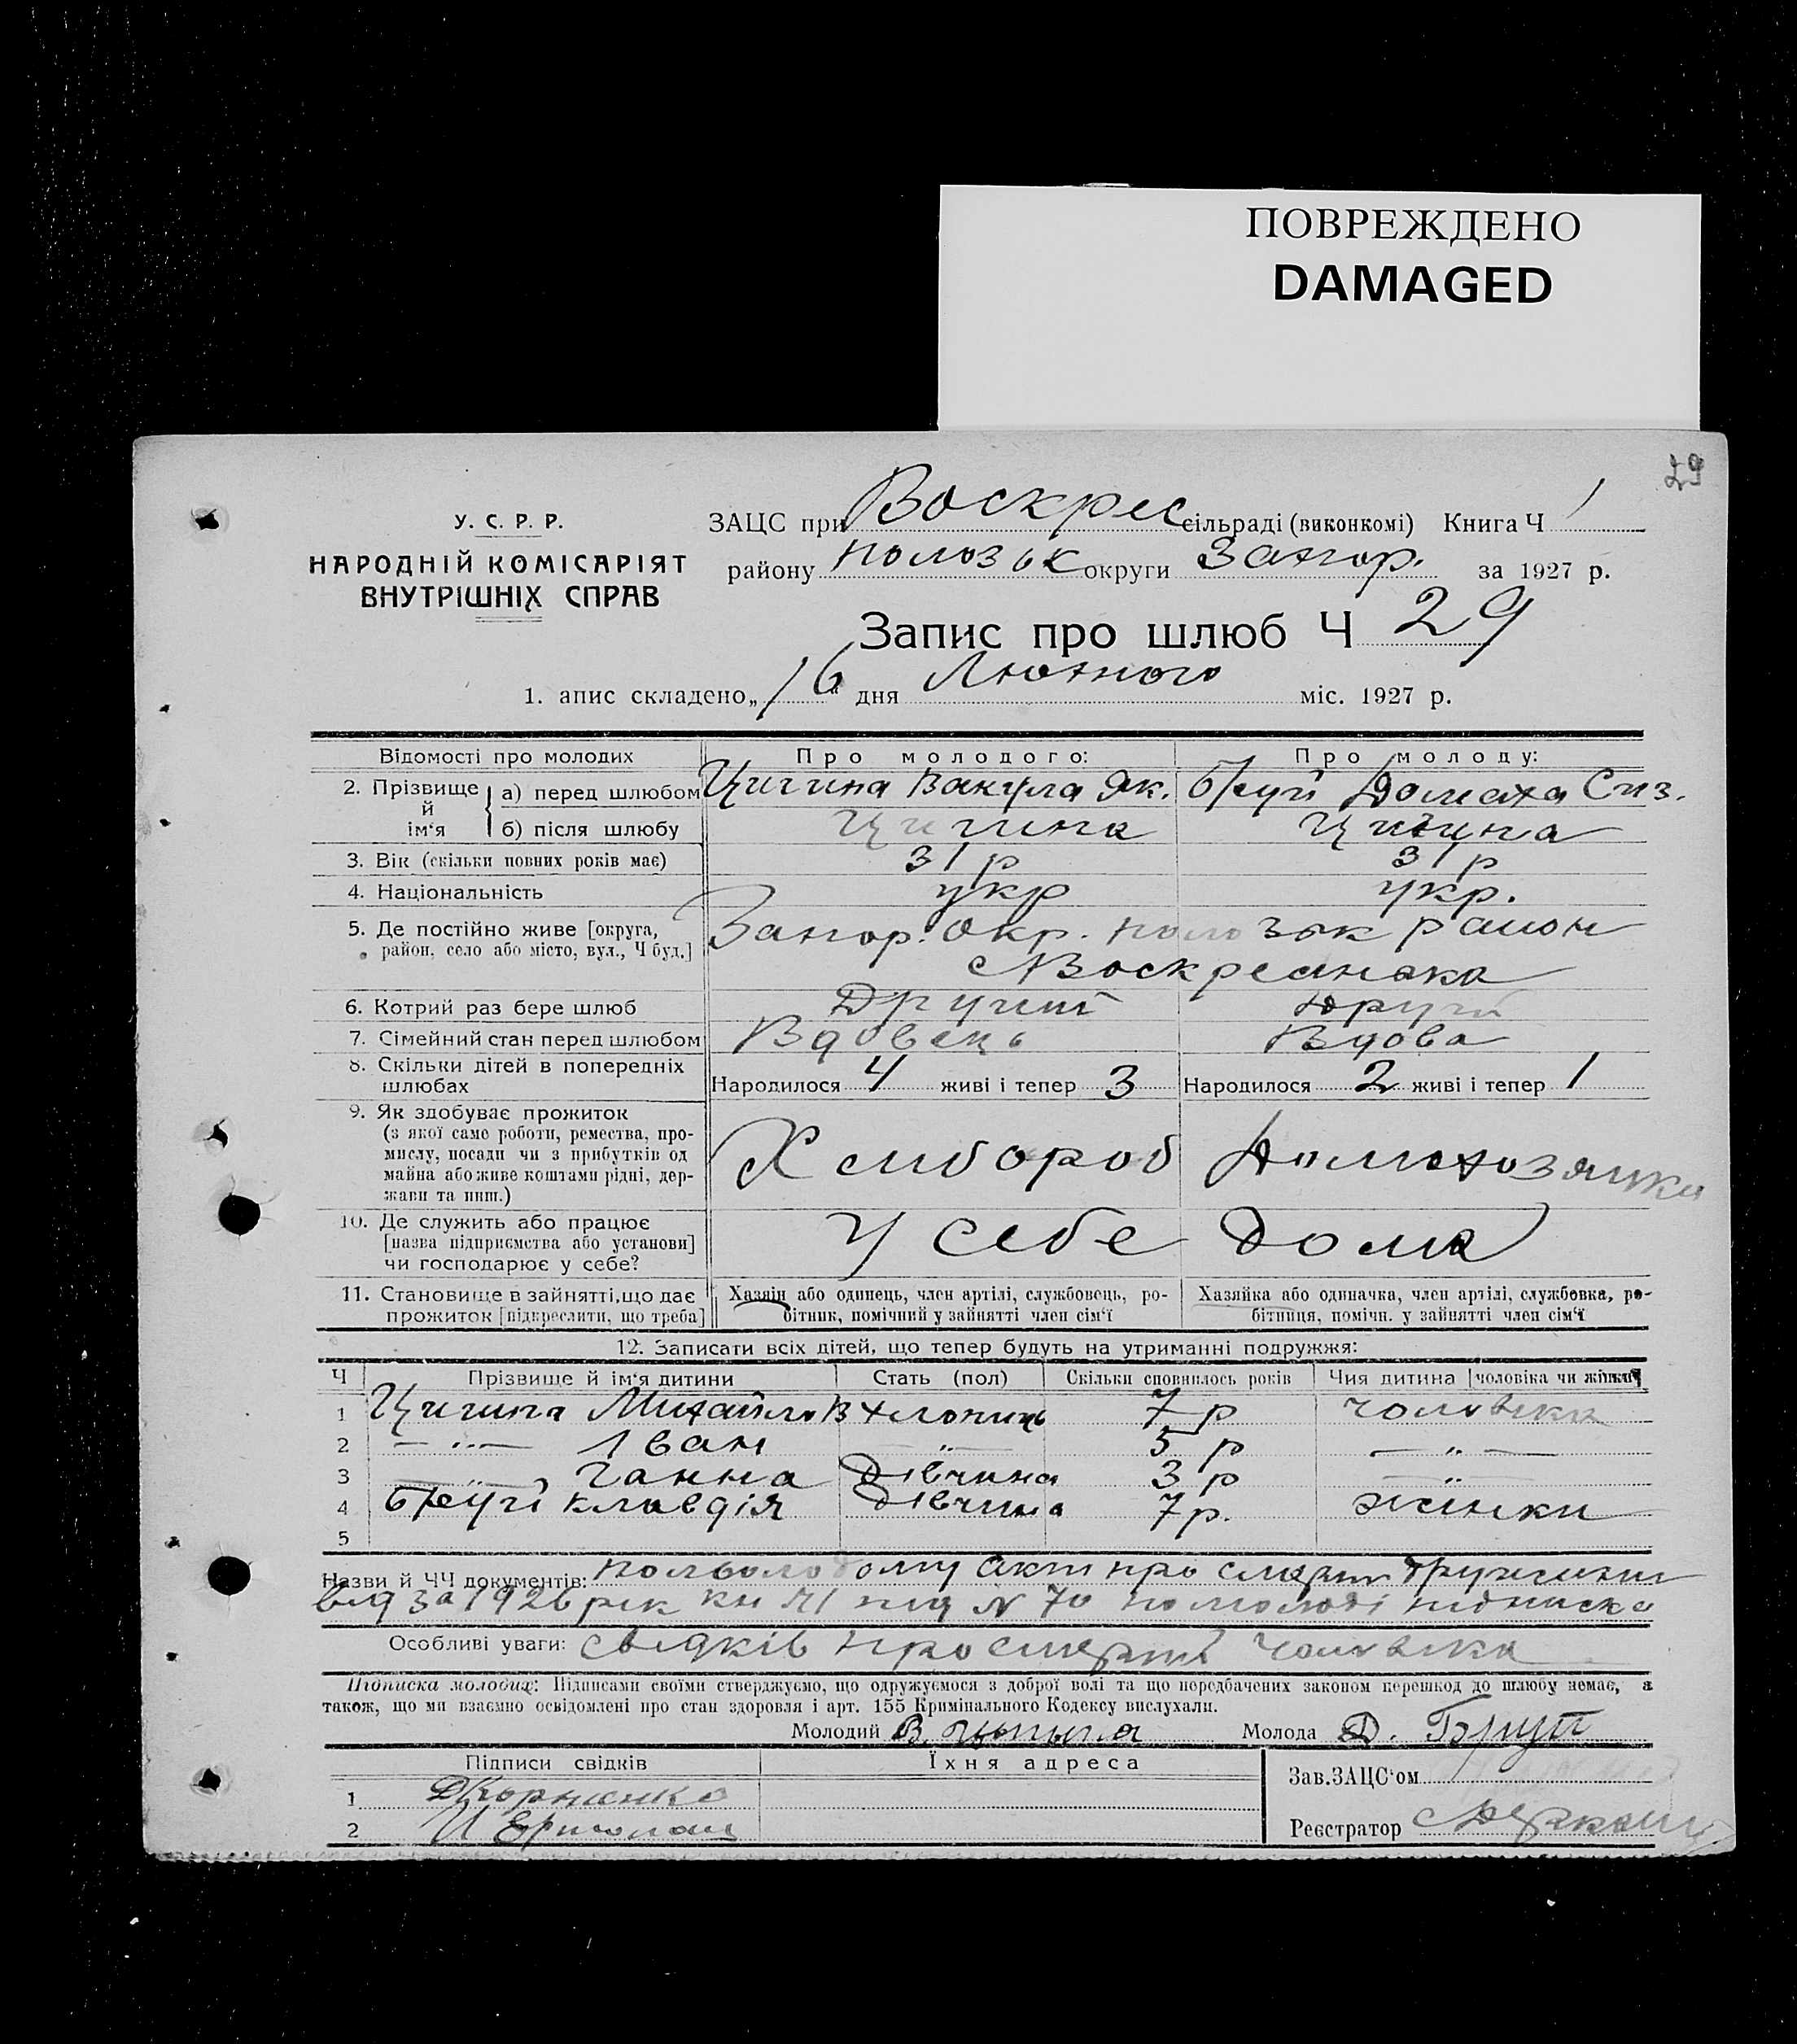 ПОВРЕЖДЕНО
DAMAGED
29
У. С. Р. Р.
НАРОДНІЙ КОМІСАРІЯТ
ВНУТРІШНІХ СПРАВ
ЗАЦС при Воскрес сільраді (виконкомі) Книга Ч 1
району полозьк округи Запор. за 1927 р.
Запис про шлюб Ч 29
1. апис складено „16“ дня Лютого міс. 1927 р.
Відомості про молодих Про молодого: Про молоду:
2. Прізвище й ім‘я а) перед шлюбом Цигина Вакула Як. Бруй Домаха Сиз.
б) після шлюбу Цигина Цигина
3. Вік (скільки повних років має) 31 р 31 р
4. Національність укр укр.
5. Де постійно живе [округа, район, село або місто, вул., Ч буд.] Запор. Окр. полозьк район
с Воскресянська
6. Котрий раз бере шлюб Другий другий
7. Сімейний стан перед шлюбом Вдовець Вдова
8. Скільки дітей в попередніх шлюбах Народилося 4 живі і тепер 3 Народилося 2 живі і тепер 1
9. Як здобуває прожиток
(з якої саме роботи, ремества, про-
мислу, посади чи з прибутків од
майна або живе коштами рідні, дер-
жави та инш.) Хлибороб Домохозяйка
10. Де служить або працює
[назва підприємства або установи]
чи господарює у себе? У себе дома
11. Становище в зайнятті, що дає
прожиток [підкреслити, що треба]
Хазяїн або одинець, член артілі, службовець, ро-
бітник, помічний у зайнятті член сім‘ї
Хазяйка або одиначка, член артілі, службовка, ро-
бітниця, помічн. у зайнятті член сім‘ї
12. Записати всіх дітей, що тепер будуть на утриманні подружжя:
Ч Прізвище й ім‘я дитини Стать (пол) Скільки сповнилось років Чия дитина [чоловіка чи жінки]
1 Цигина Михайло Хлопиць 7 р чоловіка
2 — „ — Іван — „ — 5 р — „ —
3 — „ — Ганна Дівчина 3 р — „ —
4 Бруй Клавдія Дівчина 7 р. жінки
5
Назви й ЧЧ документів: по молодому Акт про смерть дружини
від за 1926 рік кн Ч1 під № 70 по молоді підписка
Особливі уваги: свідків про смерть чоловіка
Підписка молодих: Підписами своїми стверджуємо, що одружуємося з доброї волі та що передбачених законом перешкод до шлюбу немає, а
також, що ми взаємно освідомлені про стан здоровля і арт. 155 Кримінального Кодексу вислухали.
Молодий В. Цыгына Молода Д. Бруй
Підписи свідків Їхня адреса
Зав.ЗАЦС‘ом
1 Д Корниенко
2
Реєстратор